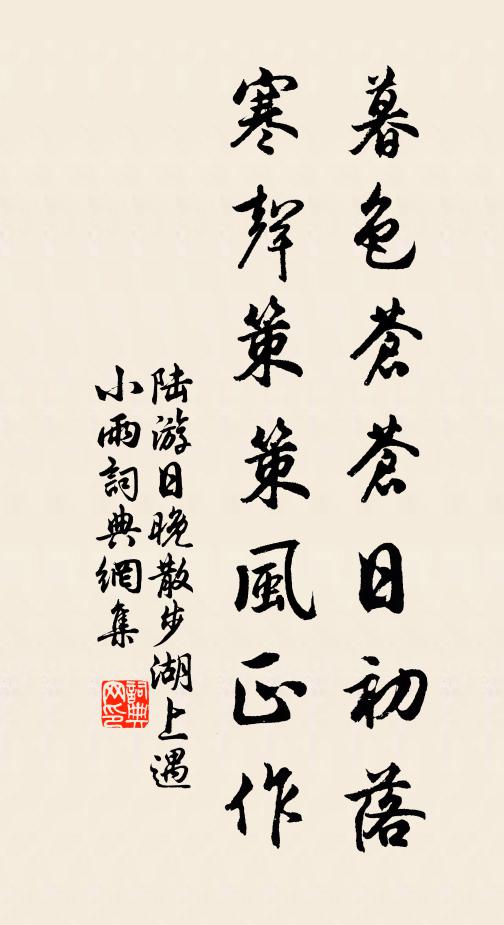 暮色蒼蒼日初落
寒聲策策風正作
陸游日晚散步湖上遇
小雨詞典網集
詞典
网印